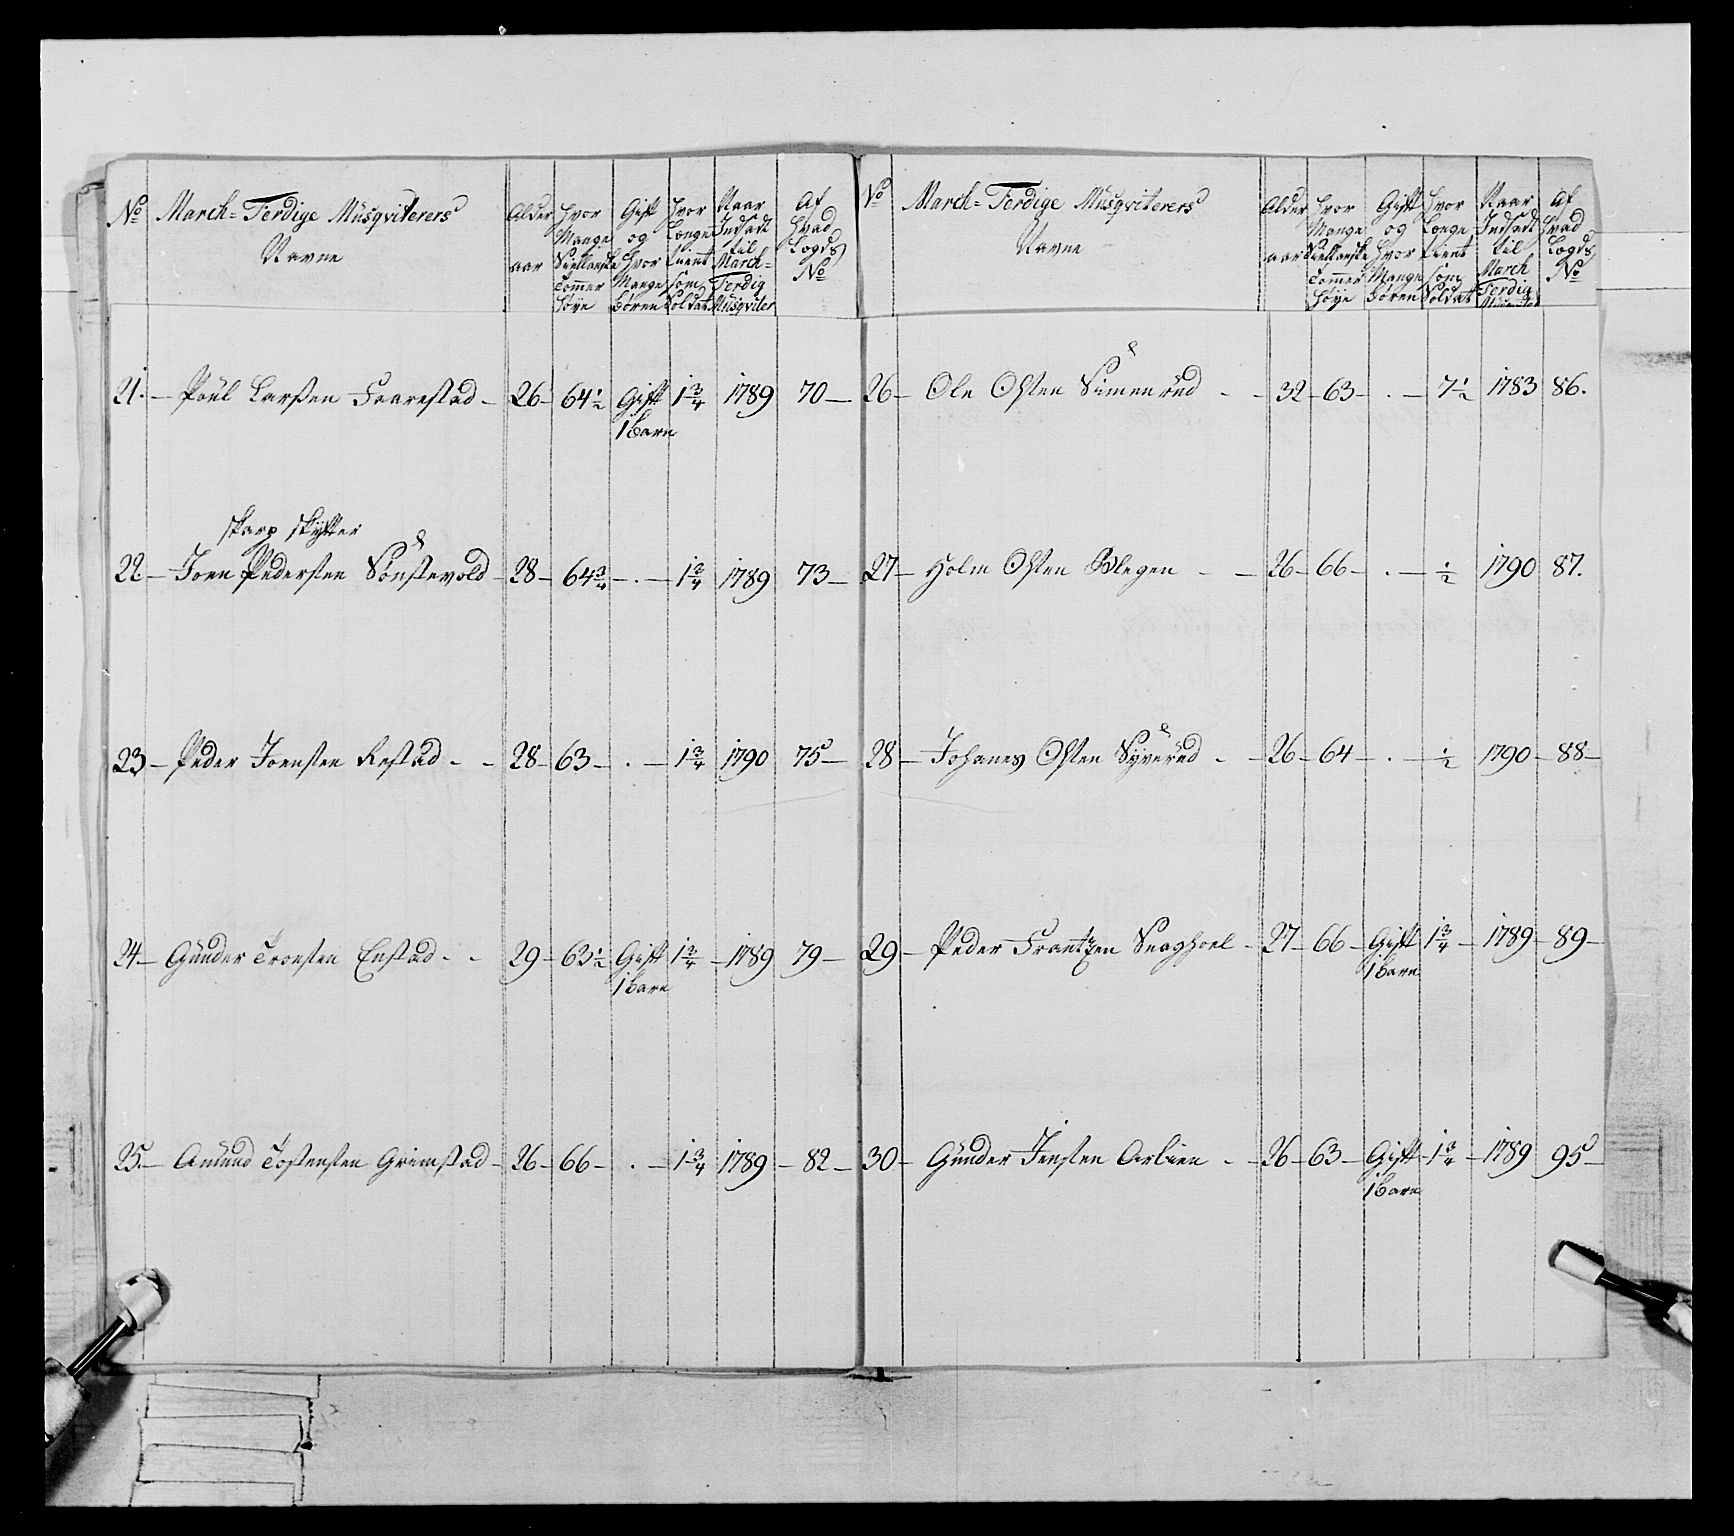 No March-Ferdige Musqviterers Navne | Alder aar | Hvor Mange Siellanske Tommer Høye | Gift og Hvor Mange Børen | Hvor Længe tient som Soldat | Naar Indsadt til March-Ferdig Musqviter | Af Hvad Lægds No
21. – Poül Larssen Faarestad – 26 – 64½ Gift 1¾ 1789 70 –
1 Barn
skarp skytter
22 – Joen Pedersten Sønstevold – 28 – 64¾ – . – 1¾ 1789 73 –
23 – Peder Joensten Restad – – 28 – 63 – . – 1¾ 1790 75 –
24 – Günder Troensten Enstad – – 29 – 63½ Gift 1¾ – 1789 79 –
1 Barn
25. – Amund Tostensten Grimstad – 26 – 66 – . – 1¾ 1789 – 82 –
No March-Ferdige Musqviterers Navne | Alder aar | Hvor Mange Siellanske Tommer Høye | Gift og Hvor Mange Børen | Hvor Længe tient som Soldat | Naar Indsadt til March Ferdig | Af Hvad Lægds No
26 – Ole Olsten Simenrüd – – 32 – 63 – . – 7½ 1783 86.
27 – Holm Olsten Blegen – – 26 – 66 – . – ½ 1790 87.
28 – Johanes Olsten Syverüd – – 26 – 64 – . – ½ 1790 – 88 –
29 – Peder Frantzen – 27 – 66 – Gift 1¾ – 1789 – 89 –
1 Barn
30 – Günder Jensten – – 26 – 63 – Gift – 1¾ – 1789 95 –
1 Barn